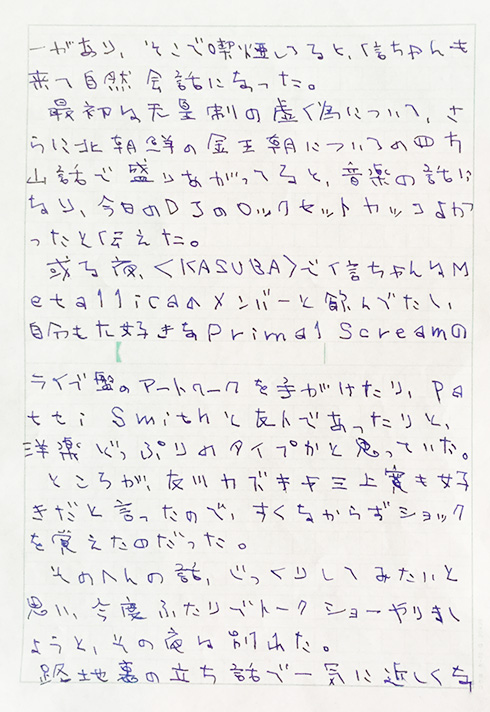 ーがあり、そこで喫煙してると、信ちゃんも
来て自然会話になった。
最初は天皇制の虚偽について、さ
らに北朝鮮の金王朝についての四方
山話で盛りあがってると、音楽の話に
なり、今日のDJのロックセットカッコよか
ったと伝えた。
或る夜、<KASUBA>で信ちゃんはM
etallicaのメンバーと飲んでたし、
自分も大好きなPrimal Screamの
ライブ盤のアートワークを手がけたり、Pa
tti Smithと友人であったりと、
洋楽どっぷりのタイプかと思っていた。
ところが、友川カズキや三上寛も好
きだと言ったので、すくなからずショック
を覚えたのだった。
そのへんの話、じっくりしてみたいと
思い、今度ふたりでトークショーやりまし
ょうと、その夜は別れた。
路地裏の立ち話で一気に近しくな